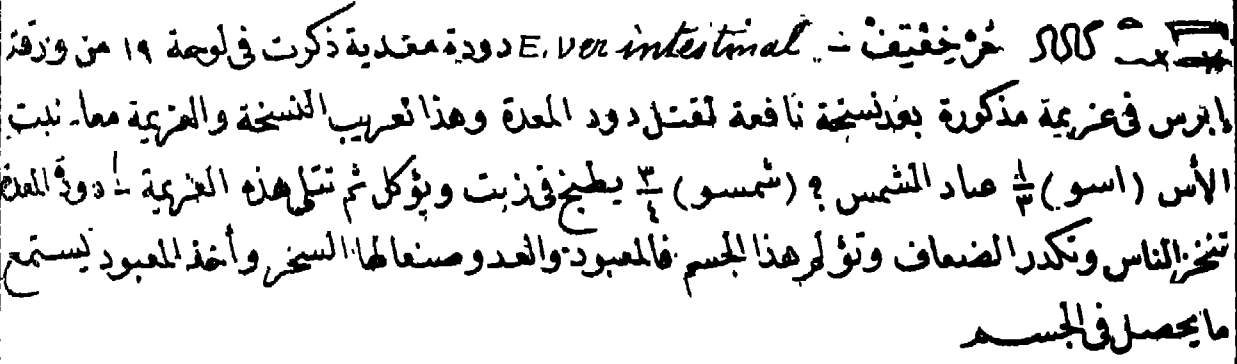 خَرْخِفْتِيفْ - E. ver intestinal دودة معدية ذكرت فى لوحة ١٩ من ورقة
إبرس فى عزيمة مذكورة بعد نسخة نافعة لقتل دود المعدة وهذا تعريب النسخة والعزيمة معا ـ نبت
الأس (اسو) ١/٣ عباد الشمس ؟ (شمسو) ٣/٤ يطبخ فى زيت ويؤكل ثم تتلى هذه العزيمة دودة المعدة
تنخز الناس وتكدر الضعاف وتؤلم هذا الجسم فالمعبود والعدو صنعا لها السحر وأخذ المعبود يستمع
ما يحصل فى الجسم